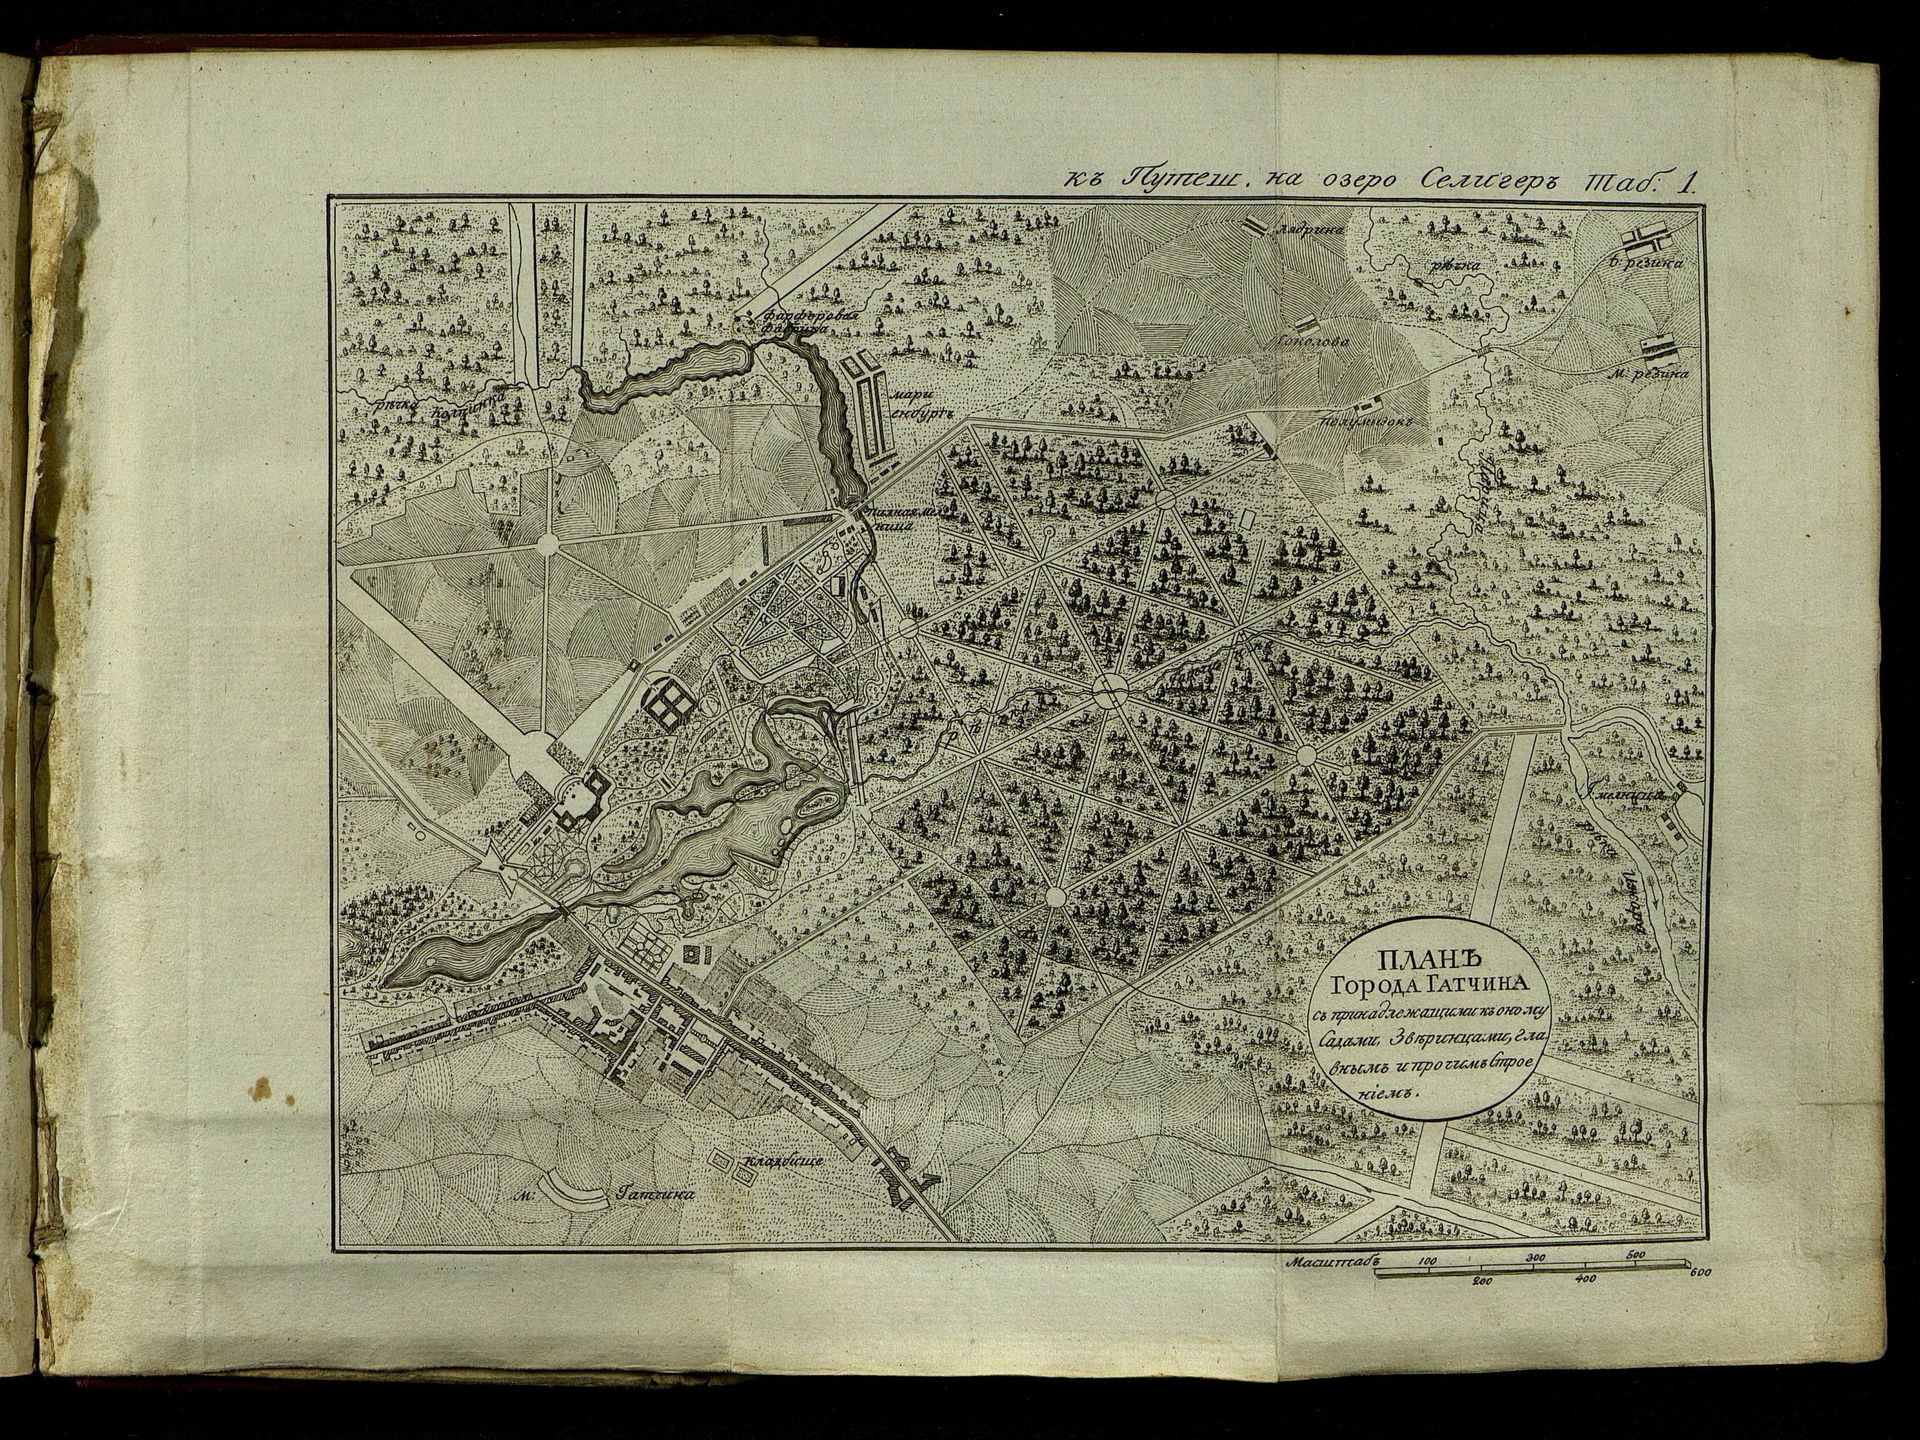 къ Путеш. на озеро Селигеръ Таб: 1.
лядрина
рѣчка
б: резина
фарфоровая
фабрика
Соколова
м: резина
рѣчка Колпинка
мари
енбургъ
Полумызокъ
Пилная мел
ница
мелница
рѣка
Ижора
ПЛАНЪ
Города Гатчина
съ принадлежащими къ оному
Садами, Звѣринцами, гла
внымъ и прочимъ строе
ніемъ.
кладбище
м: Гатчина
Масштабъ 100 200 300 400 500 600